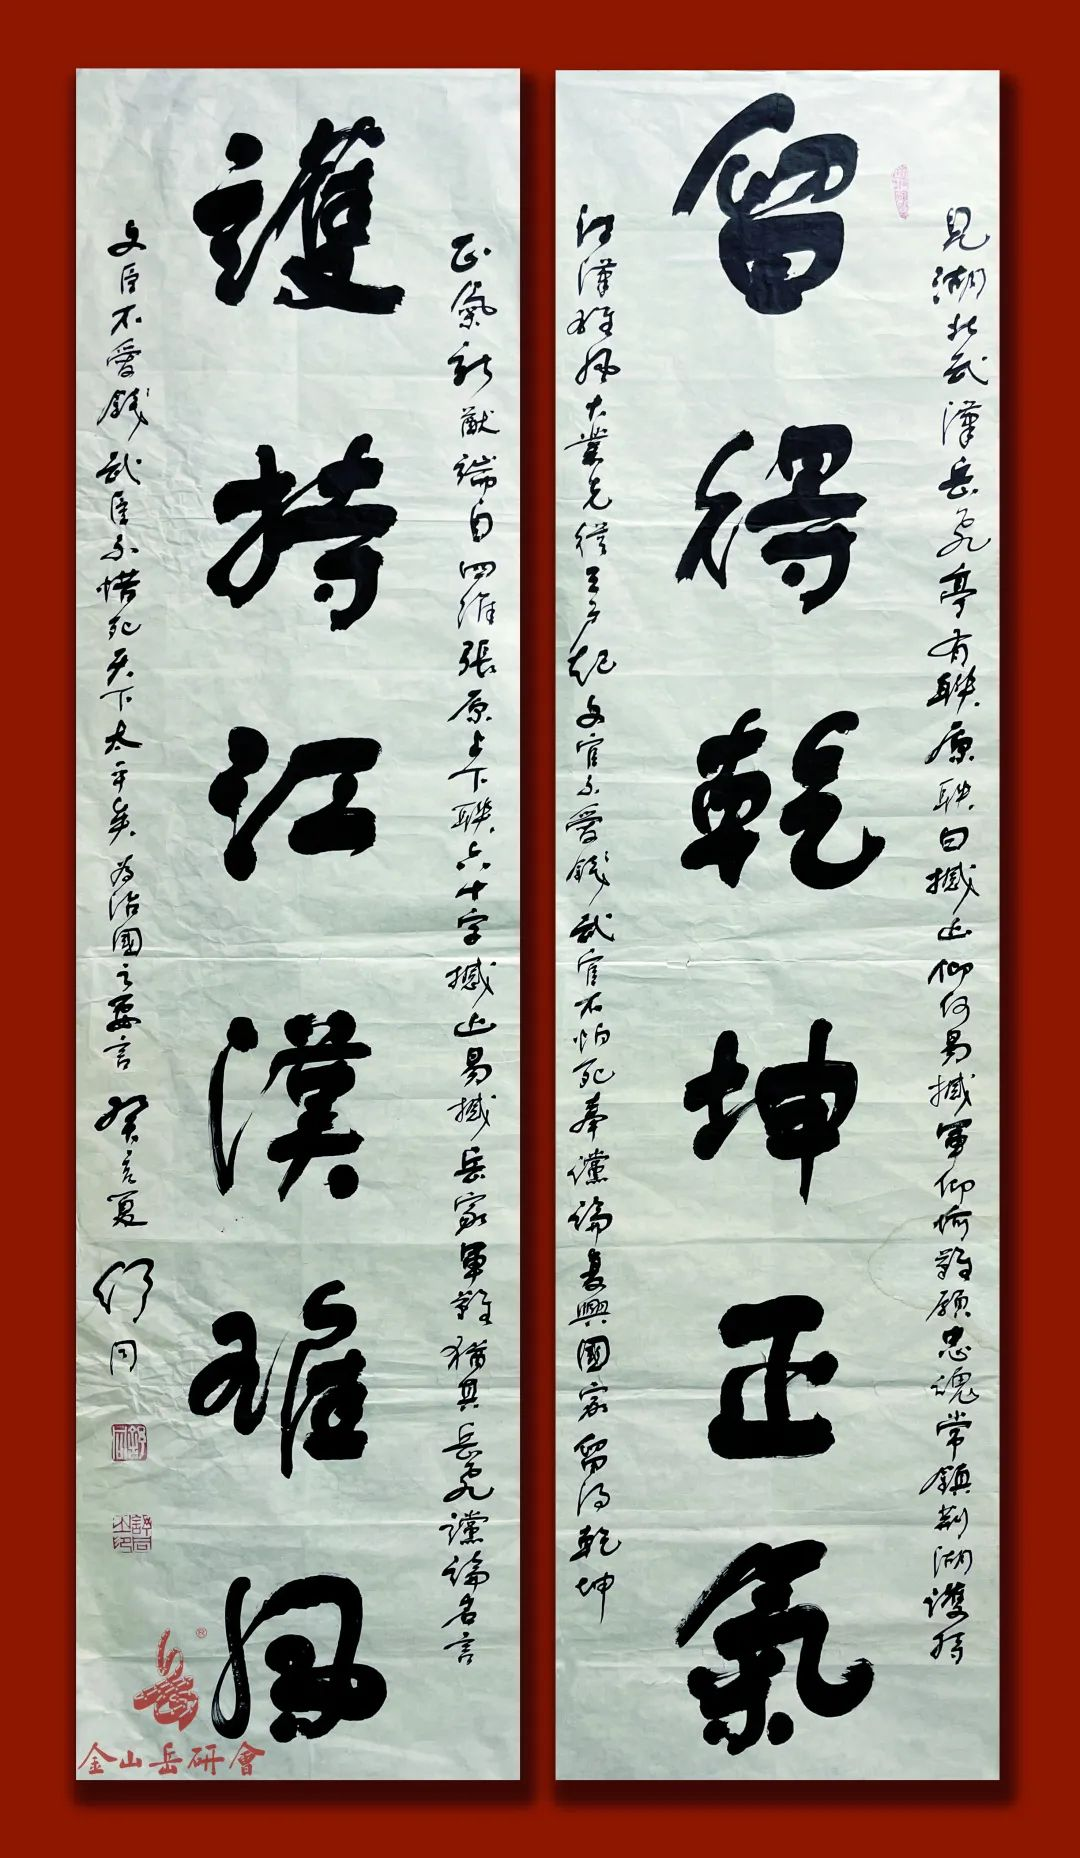 見湖北武漢岳飛亭有聯原聯曰撼山抑何易撼軍抑何難願忠魂常鎮荊湖護持
留得乾坤正氣
江漢雄風大業先從三戶起文官不愛錢武官不怕死奉讜論复興國家留得乾坤
正氣新猷端自四維張原上下聯六十字撼山易撼岳家軍難猶其岳飛讜論名言
護持江漢雄風
文臣不愛錢武臣不惜死天下太平矣為治國之要言 癸卯夏 同
®
金山岳研會